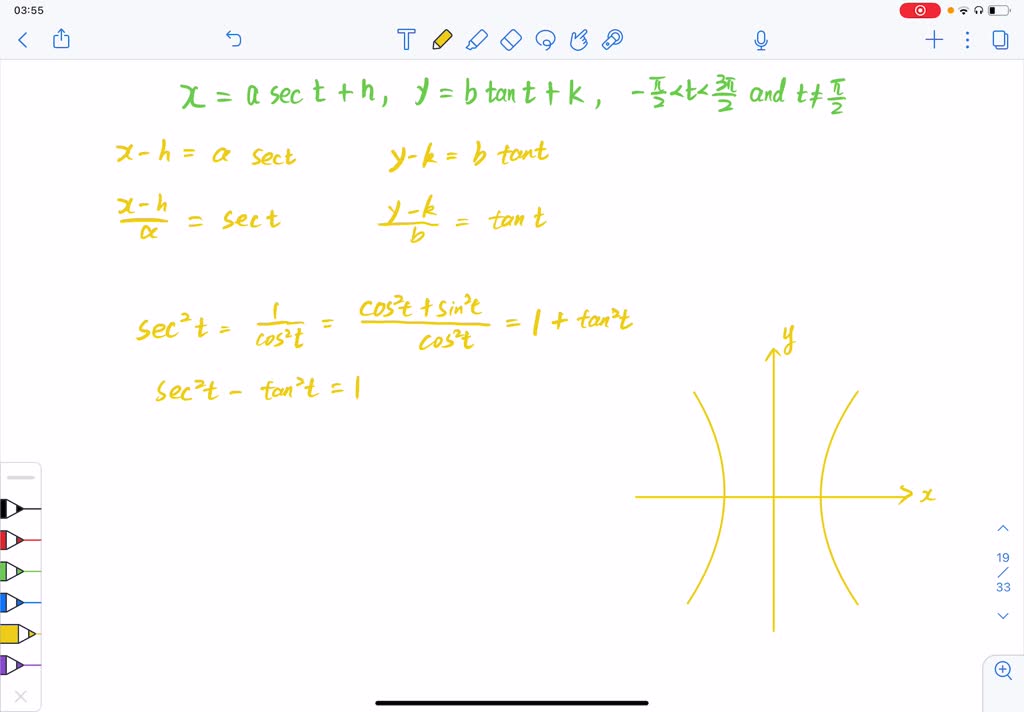 03:55
x = a sec t + h, y = b tan t + k, -π/2 < t < 3π/2 and t ≠ π/2
x - h = a sec t y - k = b tan t
(x - h)/a = sec t (y - k)/b = tan t
sec²t = 1/cos²t = (cos²t + sin²t)/cos²t = 1 + tan²t
sec²t - tan²t = 1
y
x
19
/
33